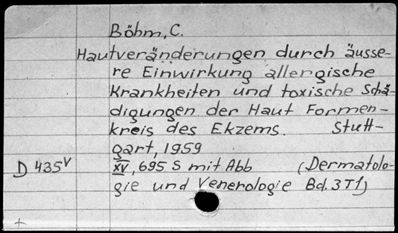 Böhm, C.
Hautveränderungen durch äusse-
re Einwirkung allergische
Krankheiten und toxische Schä-
digungen der Haut Formen-
kreis des Ekzems. Stutt-
gart, 1959
D 435V XV, 695 S mit Abb (Dermatolo-
gie und Venerologie Bd. 3 T1)